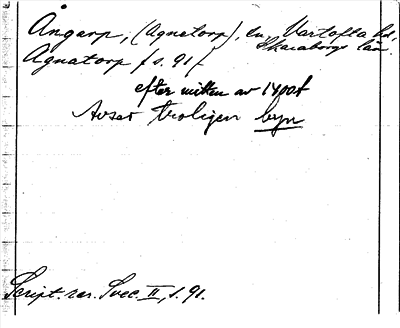 Ångarp, (Agnatorp), by, Vartofta hd,
Skaraborgs län.
Agnatorp /s. 91/
efter mitten av 1400t
Avser troligen byn
Script. rer. Svec. II, s. 91.